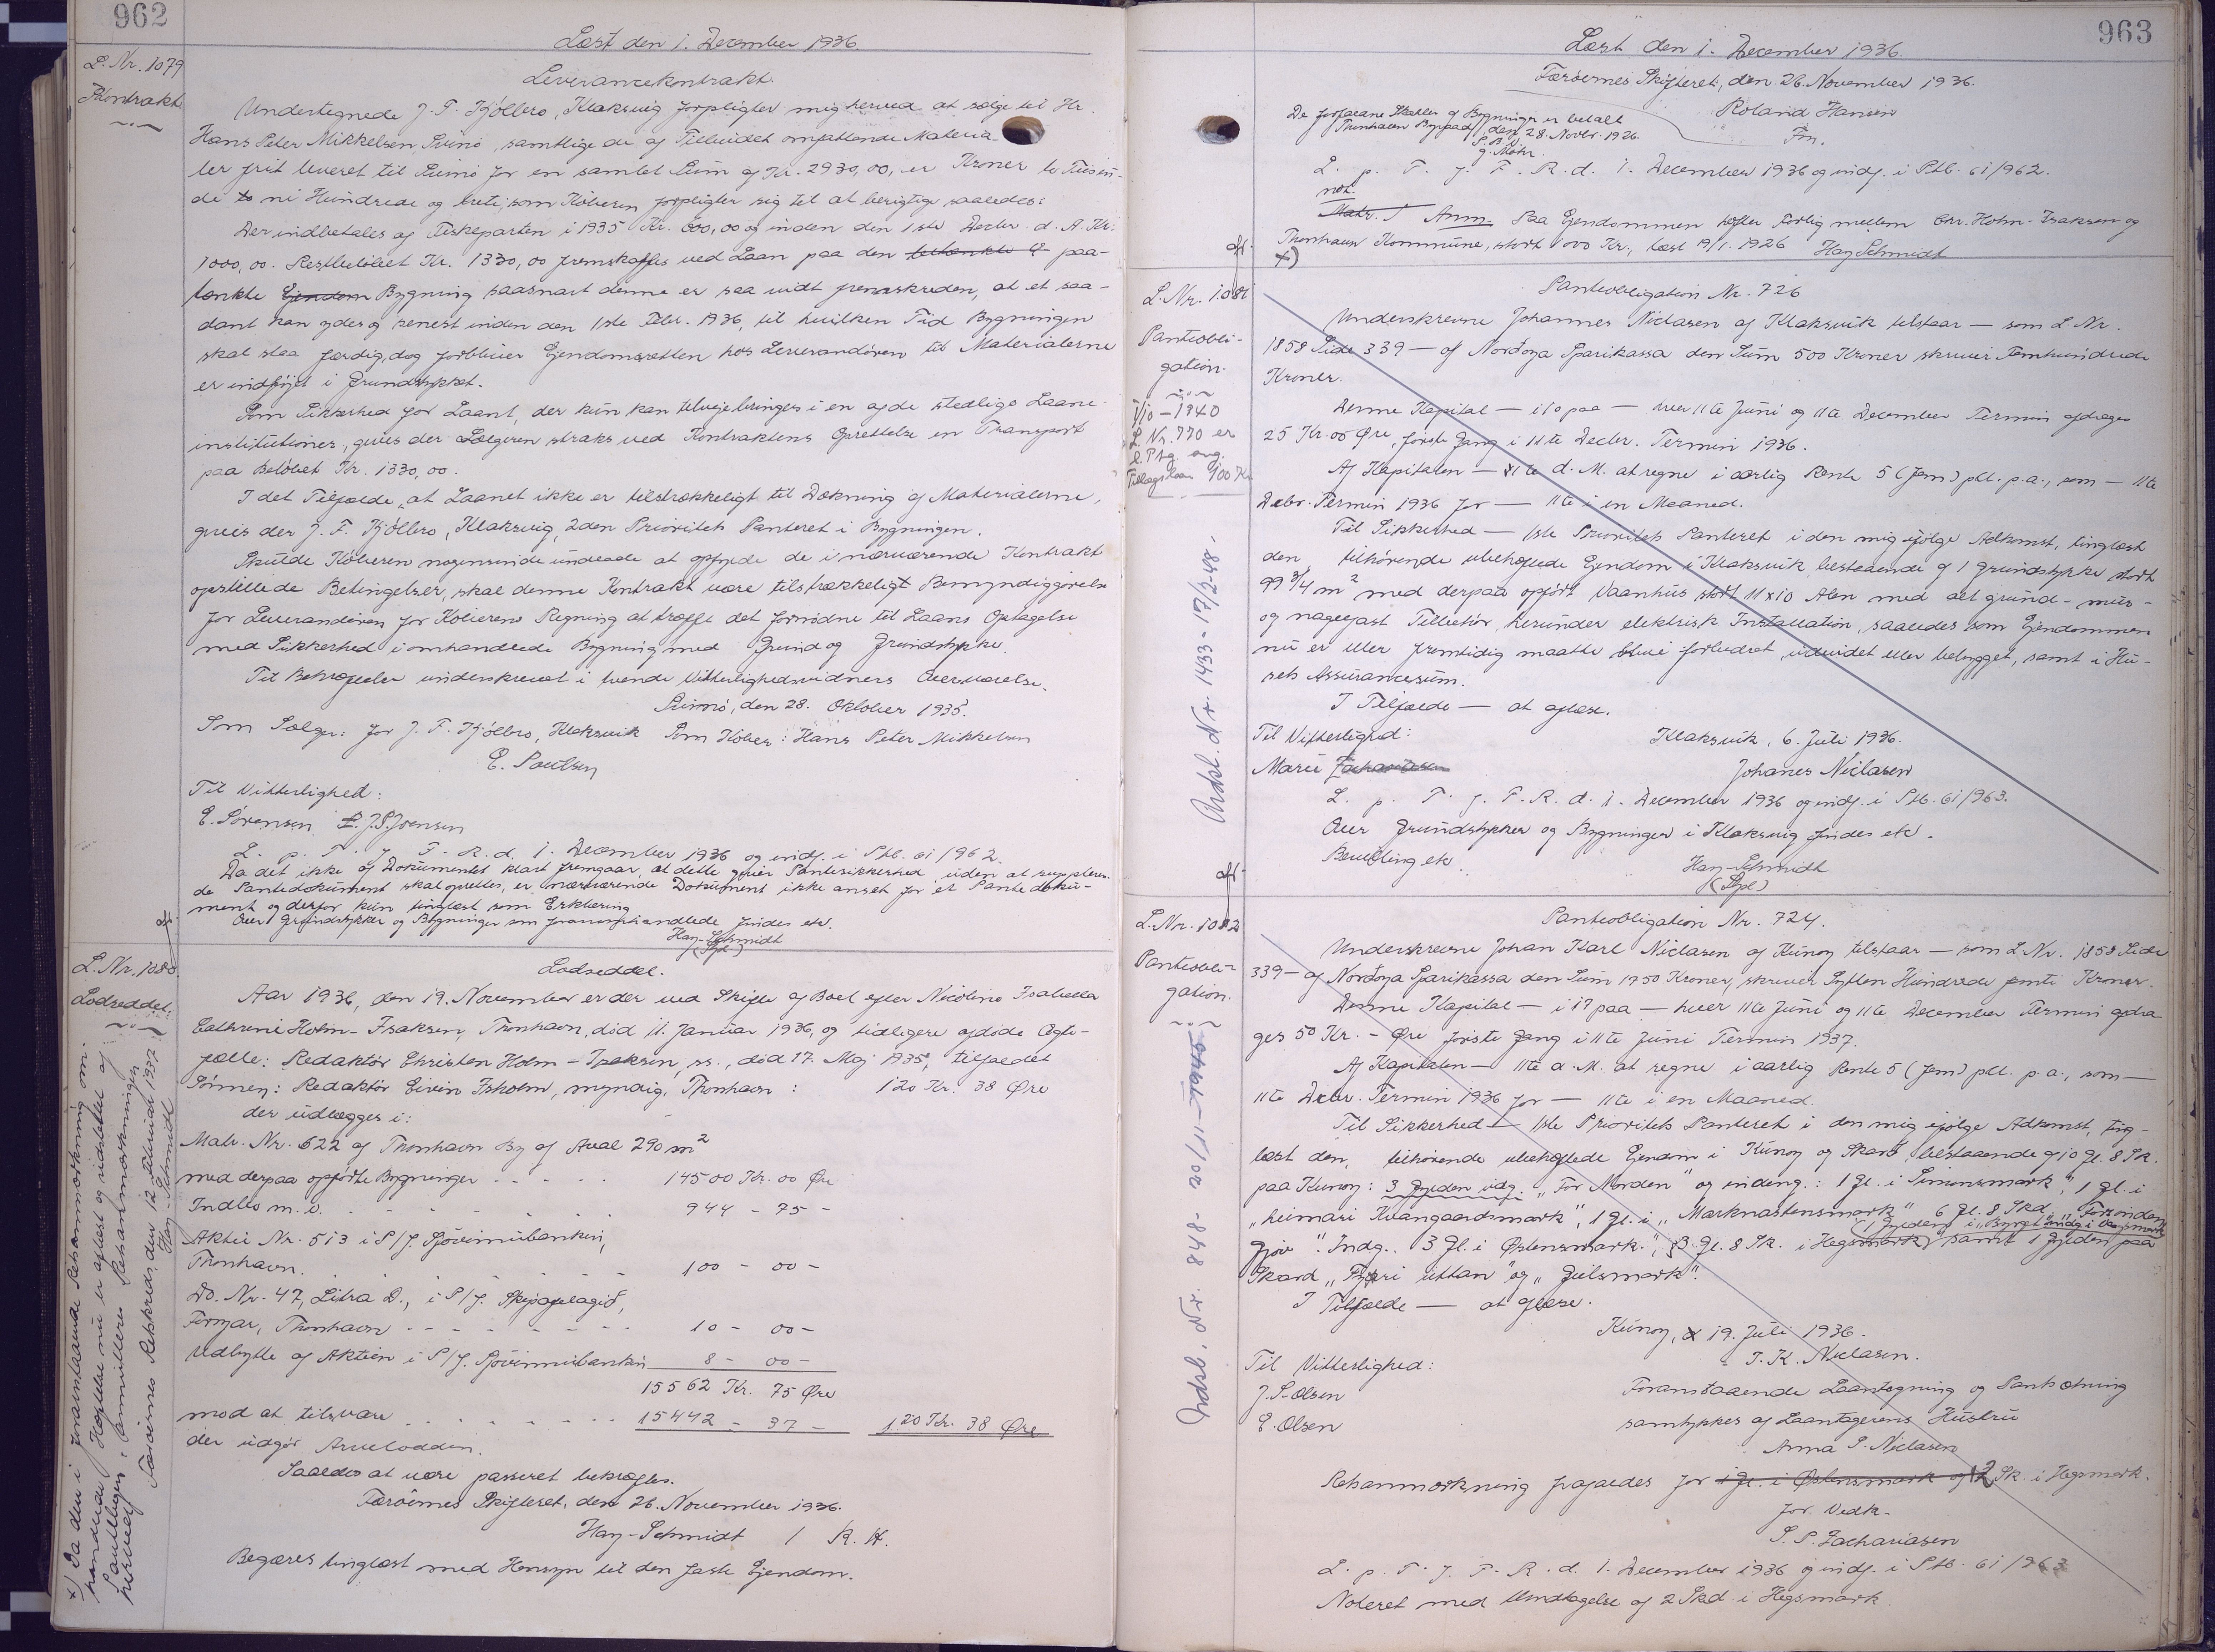 962
Læst den 1. December 1936.
L. Nr. 1079
Kontrakt
Leverancekontrakt.
Undertegnede J. F. Kjölbro, Klaksvig forpligter mig herved at sælge til Hr.
Hans Peter Mikkelsen, Svinö, samtlige de af Tilbudet omfattende Materia-
ler frit leveret til Svinö for en samlet Sum af Kr. 2930,00, er Kroner to Tusin-
de to ni Hundrede og treti, som Köberen forpligter sig til at berigtige saaledes:
Der indbetales af Fiskeparten i 1935 Kr. 600,00 og inden den 1ste Decbr. d. A. Kr.
1000,00. Restbelöbet Kr. 1330,00 fremskaffes ved Laan paa den betænkte E paa-
tænkte Ejendom Bygning saasnart denne er saa vidt fremskreden, at et saa-
dant kan ydes og senest inden den 1ste Febr. 1936, til hvilken Tid Bygningen
skal staa færdig, dog forbliver Ejendomsretten hos Leverandören til Materialerne
er indföjet i Grundstykket.
Som Sikkerhed for Laant, der kun kan tilvejebringes i en af de stedlige Laane-
institutioner, gives der Sælgeren straks ved Kontraktens Oprettelse en Transport
paa Belöbet Kr. 1330,00.
I det Tilfælde, at Laanet ikke er tilstrækkeligt til Dækning af Materialerne,
gives der J. F. Kjölbro, Klaksvig, 2den Prioritets Panteret i Bygningen.
Skulde Köberen nogensinde undlade at opfylde de i nærværende Kontrakt
opstillede Betingelser, skal denne Kontrakt være tilstrækkeligt Bemyndiggörelse
for Leverandören for Köberens Regning at træffe det fornödne til Laans Optagelse
med Sikkerhed i omhandlede Bygning med Grund og Grundstykke.
Til Bekræftelse underskrevet i tvende Vitterlighedsvidners Overværelse.
Svinö, den 28. Oktober 1935.
Som Sælger: for J. F. Kjölbro, Klaksvik Som Köber: Hans Peter Mikkelsen
E. Poulsen
Til Vitterlighed:
E. Sörensen J. S. Joensen
L. p. T. f. F. R. d. 1. December 1936 og indf. i Ptb. 61/962.
Da det ikke af Dokumentet klart fremgaar, at dette giver Pantesikkerhed, uden at suppleren-
de Pantedokument skal oprettes, er nærværende Dokument ikke anset for et Pantedoku-
ment og derfor kun tinglæst som Erklæring
Over Grundstykker og Bygninger som foranomhandlede findes etc.
Hay-Schmidt
(Spl)
L. Nr. 1080.
Lodseddel.
Lodseddel.
Aar 1936, den 19. November er der ved Skifte af Boet efter Nicoline Isabella
Cathrine Holm-Isaksen, Thorshavn, död 11. Januar 1936, og tidligere afdöde Ægte-
fælle: Redaktör Christen Holm-Isaksen, ss., död 17. Maj 1935, tilfaldet
Sönnen: Redaktör Eivin Isholm, myndig, Thorshavn: 120 Kr. 38 Øre
der udlægges i:
Matr. Nr. 622 af Thorshavn By af Areal 290 m²
med derpaa opförte Bygninger 14500 Kr. 00 Øre
Indbo m. v. 944 - 75 -
Aktie Nr. 513 i P/f. Sjóvinnubankin,
Thorshavn. 100 - 00 -
Do. Nr. 47, Litra D., i P/f. Skipafelagið,
Föroyar, Thorshavn 10 - 00 -
Udbytte af Aktien i P/f. Sjóvinnubankin 8 - 00 -
15562 Kr. 75 Øre
mod at tilsvare 15442 - 37 - 120 Kr. 38 Øre
der udgör Arvelodden.
Saaledes at være passeret bekræftes.
Færöernes Skifteret, den 26. November 1936.
Hay-Schmidt / R. H.
Begæres tinglæst med Hensyn til den faste Ejendom.
x) Da den i foranstaaende Retsanmærkning om-
handlede Hæftelse nu er aflæst og udslettet af
Pantebogen, annulleres Retsanmærkningen
herved.
Færöernes Retskreds, den 12. Februar 1937.
Hay-Schmidt
963
Læst den 1. December 1936.
Færöernes Skifteret, den 26. November 1936.
Roland Hansen
Fm.
De forfaldne Skatter af Bygningen er betalt
Thorshavn Byraad, den 28. Novbr. 1936
P. B. V.
J. Mohr.
L. p. T. f. F. R. d. 1. December 1936 og indf. i Ptb. 61/962.
not.
Matr. Anm. Paa Ejendommen hefter Forlig mellem Chr. Holm-Isaksen og
Thorshavn Kommune, stort 1000 Kr., læst 19/1. 1926 Hay Schmidt
x)
L. Nr. 1081
Panteobli-
gation.
1/10-1940
L. Nr. 770 er
Tillægslaan 900 Kr
Pantobligation Nr. 726
Underskrevne Johannes Niclasen af Klaksvik tilstaar — som L Nr.
1858 Side 339 — af Norðoya Sparikassa den Sum 500 Kroner skriver Femhundrede
Kroner.
Denne Kapital — i 10 paa — hver 11te Juni og 11te December Termin afdrages
25 Kr. 00 Øre, förste Gang i 11te Decbr. Termin 1936.
Af Kapitalen — 11te d. M. at regne i aarlig Rente 5 (fem) pCt. p.a., som — 11te
Decbr. Termin 1936 for — 11te i en Maaned.
Til Sikkerhed — 1ste Prioritets Panteret i den mig ifölge Adkomst, tinglæst
den, tilhörende ubehæftede Ejendom i Klaksvik bestaaende af 1 grundstykke stort
99 3/4 m² med derpaa opfört Vaanhus stort 11x10 Alen med alt grund- mur-
og nagelfast Tilbehör, herunder elektrisk Installation, saaledes som Ejendommen
nu er eller fremtidig maatte blive forbedret, udvidet eller bebygget, samt i Hu-
sets Assurancesum.
I Tilfælde — at aflæse.
Til Vitterlighed: Klaksvik, 6. Juli 1936.
Marie Zachariasen Johanes Niclasen
L. p. T. f. F. R. d. 1. December 1936 og indf. i Ptb. 61/963.
Over Grundstykker og Bygninger i Klaksvig findes etc.
Bevilling etc. Hay-Schmidt
(Spl)
Ardsl. Nr. 1433 - 17/2-48 -
L. Nr. 1082
Panteobli-
gation.
Pantobligation Nr. 724.
Underskrevne Johan Karl Niclasen af Kunoy tilstaar — som L Nr. 1858 Side
339 — af Norðoya Sparikassa den Sum 1750 Kroner, skriver Sytten Hundrede femti Kroner.
Denne Kapital — i 17 paa — hver 11te Juni og 11te December Termin afdra
ges 50 Kr. - Øre förste Gang i 11te Juni Termin 1937.
Af Kapitalen — 11te d. M. at regne i aarlig Rente 5 (fem) pCt. p.a., som —
11te Decbr. Termin 1936 for — 11te i en Maaned.
Til Sikkerhed — 1ste Prioritets Panteret i den mig ifölge Adkomst, ting-
læst den, tilhörende ubehæftede Ejendom i Kunoy og Skarð, bestaaende af 10 gl. 8 Sk.
paa Kunoy: 3 Gylden udg. „For Norden" og indng.: 1 Gl. i Simonsmark", 1 gl. i
„heimari Kvangaardsmark", 1 gl. i „Marknastensmark" 6 Gl. 8 Skd.
Gjov". Indg. 3 Gl. i Østensmark", 3 Gl. 8 Sk. i Hegsmark samt 1 Gylden paa
Skard og „Gulsmark".
I Tilfælde — at aflæse.
Kunoy, 19. Juli 1936.
Til Vitterlighed: J. K. Niclasen.
J. S. Olsen Foranstaaende Laantagning og Pantsætning
E. Olsen samtykkes af Laantagerens Hustru
Anna S. Niclasen
Retsanmærkning frafaldes for 1 gl. i Østensmark og 2 Sk. i Hegsmark.
for Vedk.
S. P. Zachariasen
L. p. T. f. F. R. d. 1. December 1936 og indf. i Ptb. 61/963
Noteret med Undtagelse af 2 Skd i Hegsmark
Ardsl. Nr. 848 - 20/11-